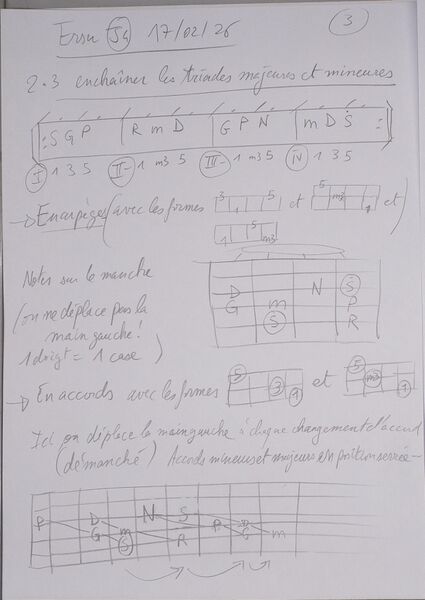 54 17/02/26
3
2.3 enchaîner les triades majeures et mineures
: S G P R m D G P N m D S :
I 1 3 5 II- 1 m3 5 III- 1 m3 5 IV 1 3 5
→ En arpèges (avec les formes 3 1 5 et 5 m3 1 et
1 5 m3 )
Notes sur le manche
(on ne déplace pas la
main gauche!
1 doigt = 1 case )
D N S
G m P
S R
→ En accords avec les formes 5 3 1 et 5 m3 1
Ici on déplace la main gauche à chaque changement d'accord
(démanché) Accords mineurs et majeurs en position serrée -
P D N S P D
G m G m
S R